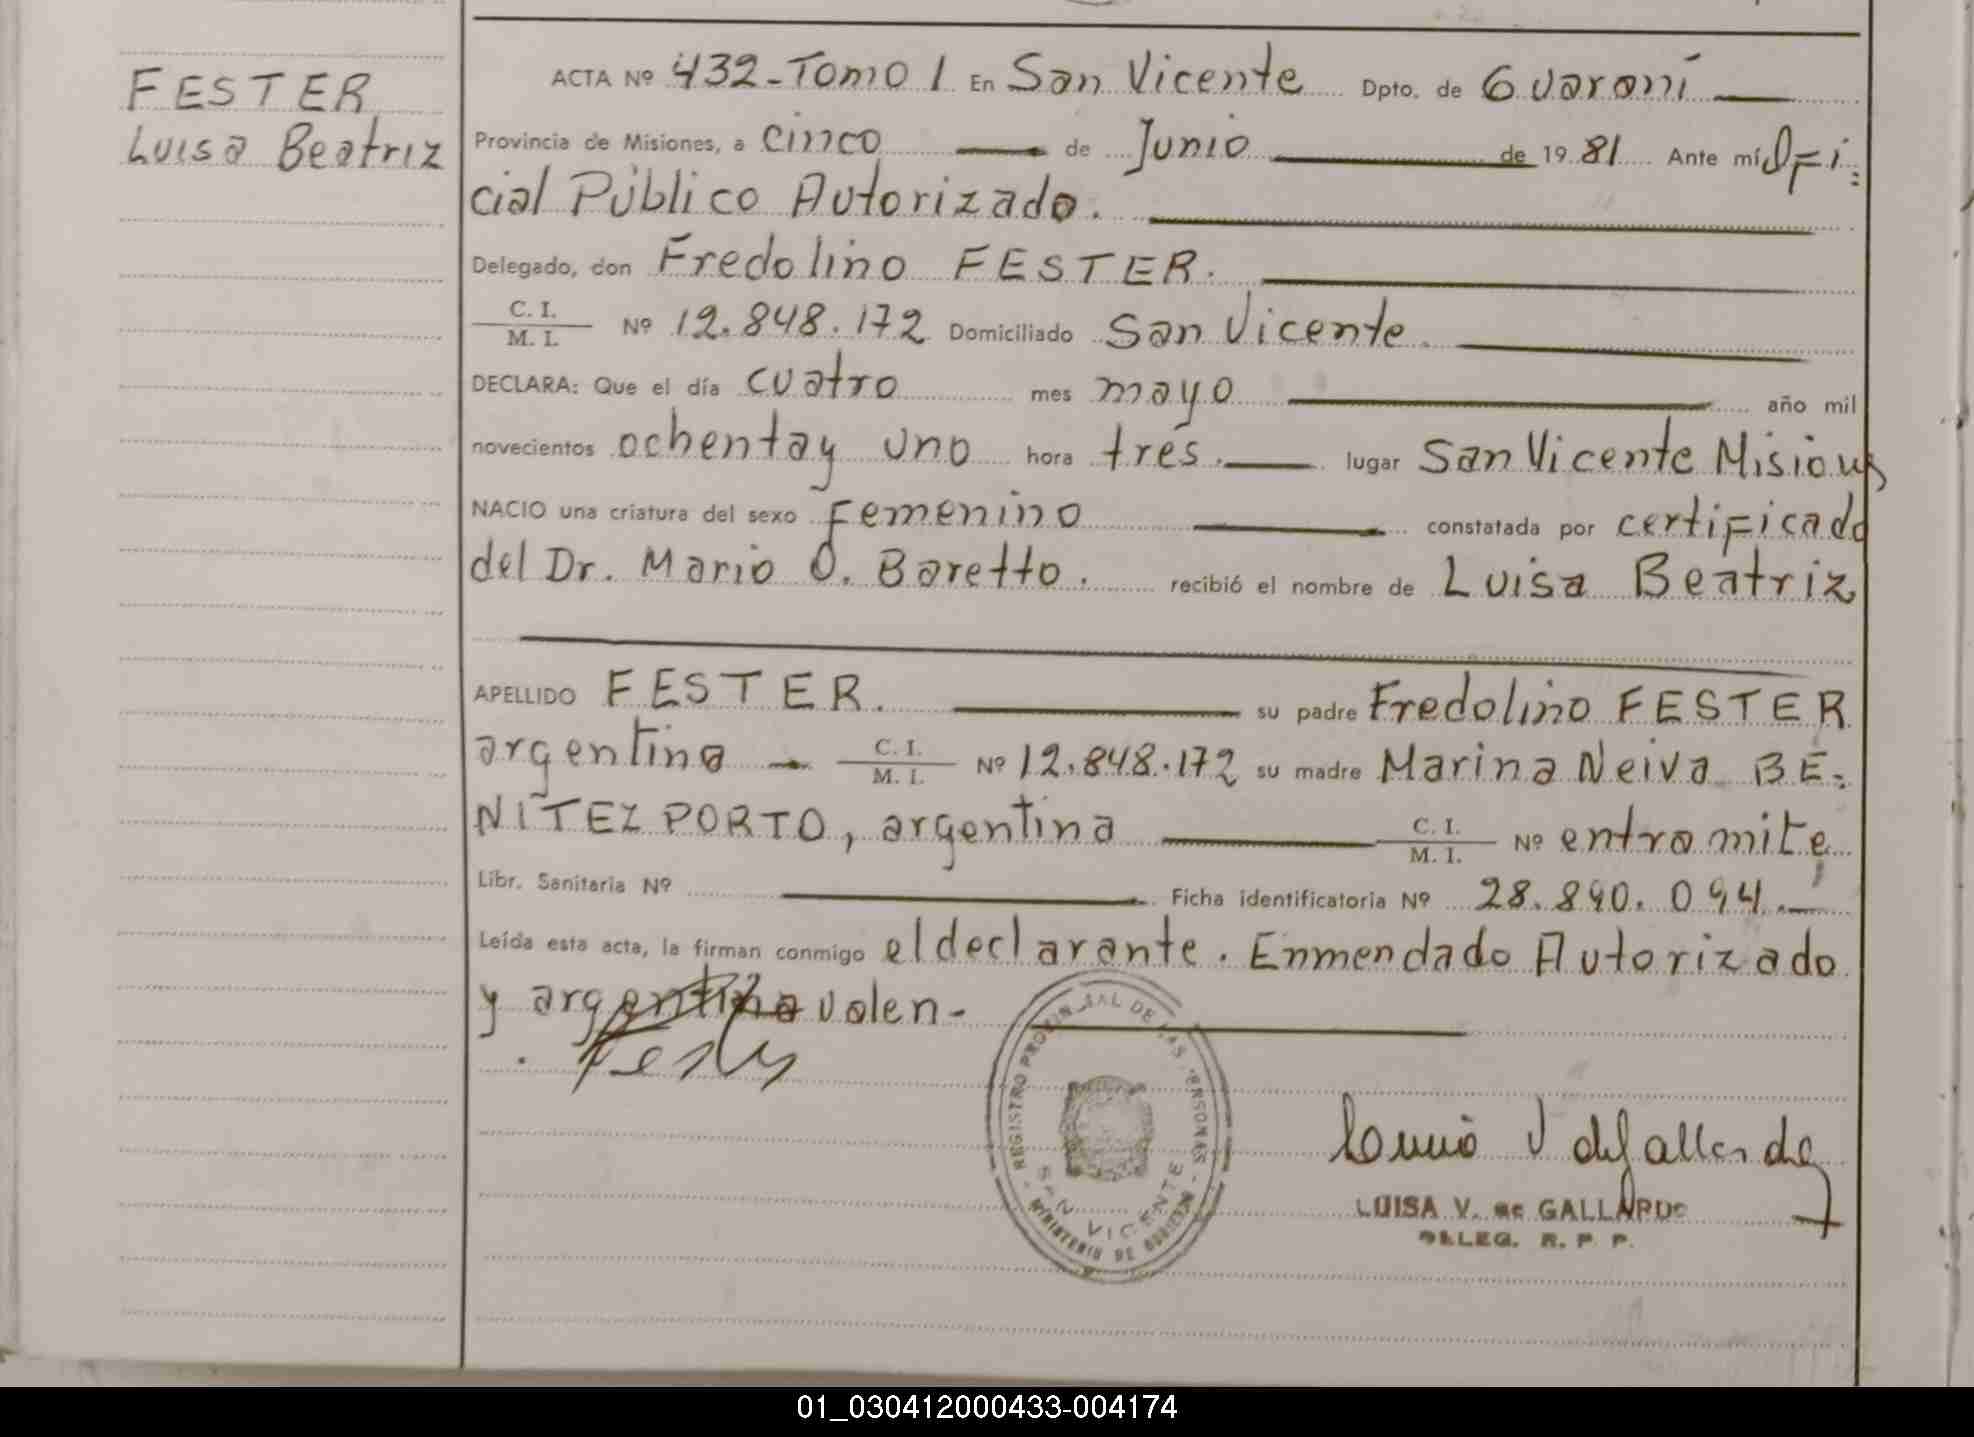 FESTER
Luisa Beatriz
ACTA Nº 432-Tomo I En San Vicente Dpto. de Guaraní
Provincia de Misiones, a cinco de Junio de 1981 Ante mí Ofi=
cial Público Autorizado.
Delegado, don Fredolino FESTER.
C. I.
M. I. Nº 12.848.172 Domiciliado San Vicente.
DECLARA: Que el día cuatro mes mayo año mil
novecientos ochentay uno hora tres. lugar San Vicente Misiones
NACIO una criatura del sexo Femenino constatada por certificado
del Dr. Mario O. Baretto. recibió el nombre de Luisa Beatriz
APELLIDO FESTER. su padre Fredolino FESTER
argentino C. I. M. I. Nº 12.848.172 su madre Marina Neiva BE=
NITEZ PORTO, argentina C. I. M. I. Nº entramite,
Libr. Sanitaria Nº Ficha identificatoria Nº 28.890.094.-
Leída esta acta, la firman conmigo el declarante. Enmendado Autorizado
y argentina valen-
REGISTRO PROVINCIAL DE LAS PERSONAS
SAN VICENTE
MINISTERIO DE GOBIERNO
LUISA V. de GALLARDO
DELEG. R. P. P.
01_030412000433-004174